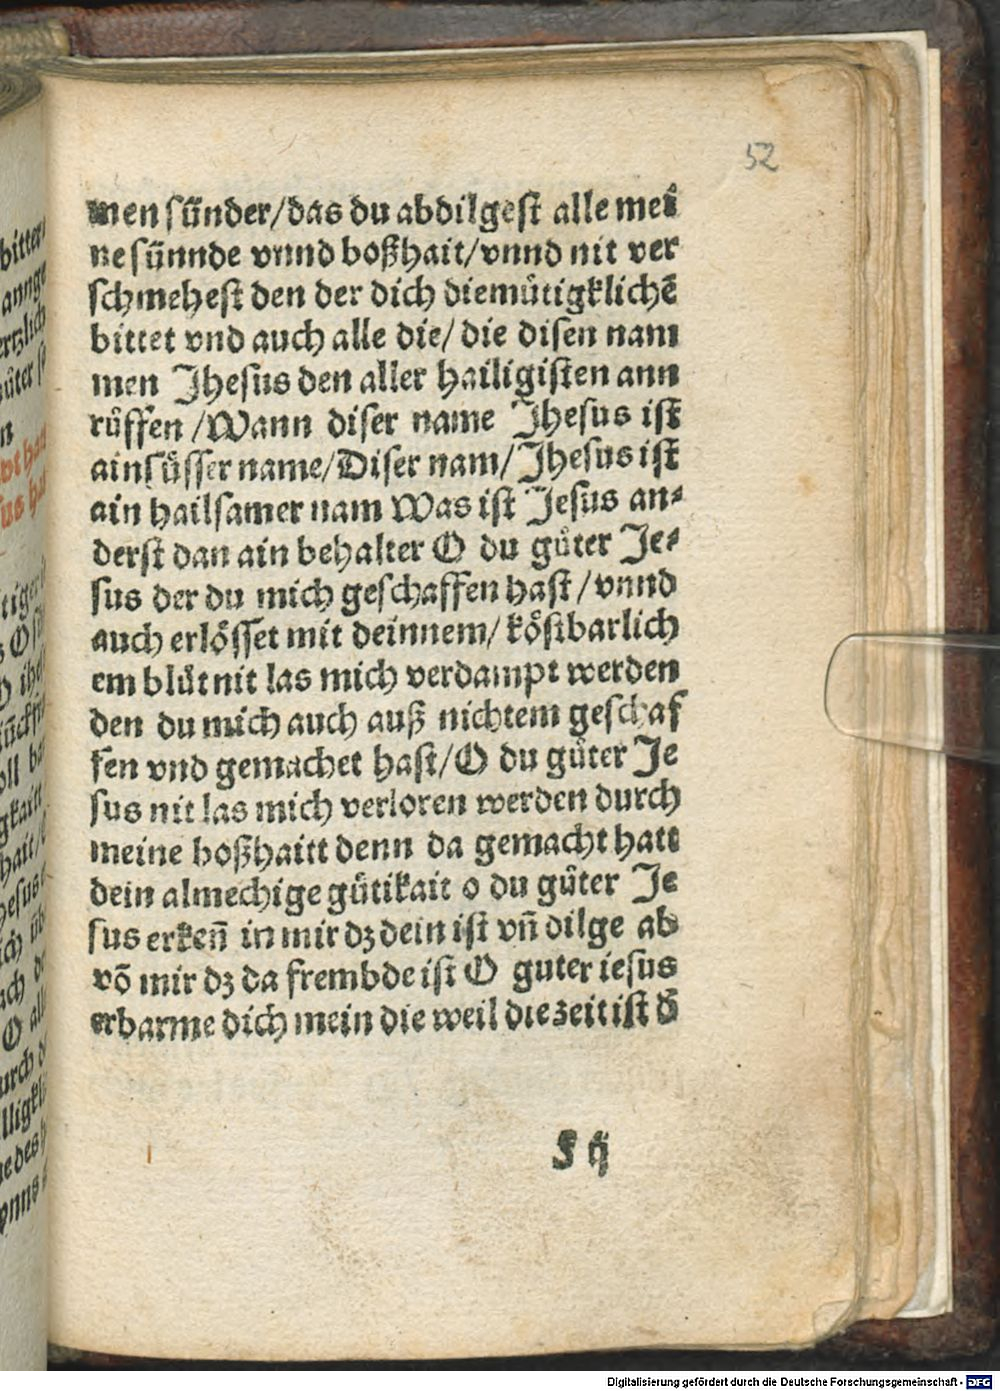 52
men sünder/das du abdilgest alle mei
ne sünnde vnnd boßhait/vnnd nit ver
schmehest den der dich diemütigklichē
bittet vnd auch alle die/ die disen nam
men Jhesus den aller hailigisten ann
růffen /Wann diser name Jhesus ist
ain süsser name/Diser nam/Jhesus ist
ain hailsamer nam Was ist Jesus an⸗
derst dan ain behalter O du gůter Je⸗
sus der du mich geschaffen hast /vnnd
auch erlösset mit deinnem/ köstbarlich
em blůt nit las mich verdampt werden
den du mich auch auß nichtem geschaf
fen vnd gemachet hast/O du gůter Je
sus nit las mich verloren werden durch
meine boßhaitt denn da gemacht hatt
dein almechige gütikait o du gůter Je
sus erkeñ in mir dz dein ist vñ dilge ab
võ mir dz da frembde ist O guter iesus
erbarme dich mein die weil die zeit ist d̄
Digitalisierung gefördert durch die Deutsche Forschungsgemeinschaft - DFG